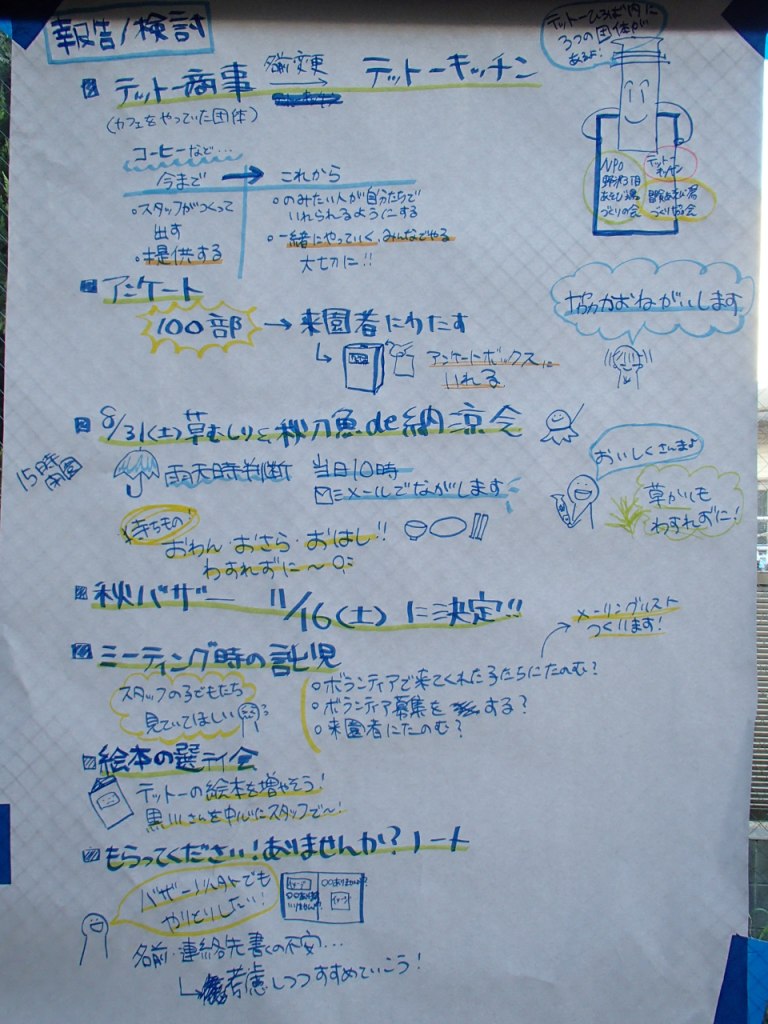 報告/検討
テットーひろば内に
3つの団体が
あるよ!
テットー商事 名前変更 → テットーキッチン
(カフェをやっていた団体)
NPO
野沢3丁目
あそび場
づくりの会
テットー
キッチン
づくり協会
コーヒーなど…
今まで → これから
○スタッフがつくって
出す
○提供する
○のみたい人が自分たちで
いれられるようにする
○一緒にやっていく、みんなでやる
大切に!!
アンケート
100部 → 来園者にわたす
↳ アンケートボックスに
いれる
協力おねがいします
8/31(土)草むしりと秋刀魚de納涼会
15時
開園
雨天時判断 当日10時
メールでながします
おいしくさんまよ
草かりも
わすれずに!
持ちもの!
おわん・おさら・おはし!!
わすれずに〜
秋バザー 11/16(土)に決定!!
メーリングリスト
つくります!
ミーティング時の託児
スタッフの子どもたち
見ていてほしい
○ボランティアで来てくれた子たちにたのむ?
○ボランティア募集をする?
○来園者にたのむ?
絵本の選定会
テットーの絵本を増やそう!
黒川さんを中心にスタッフで〜!
もらってください!ありませんか?ノート
バザー以外でも
やりとりしたい!
名前・連絡先書くの不安…
↳ 考慮しつつすすめていこう!